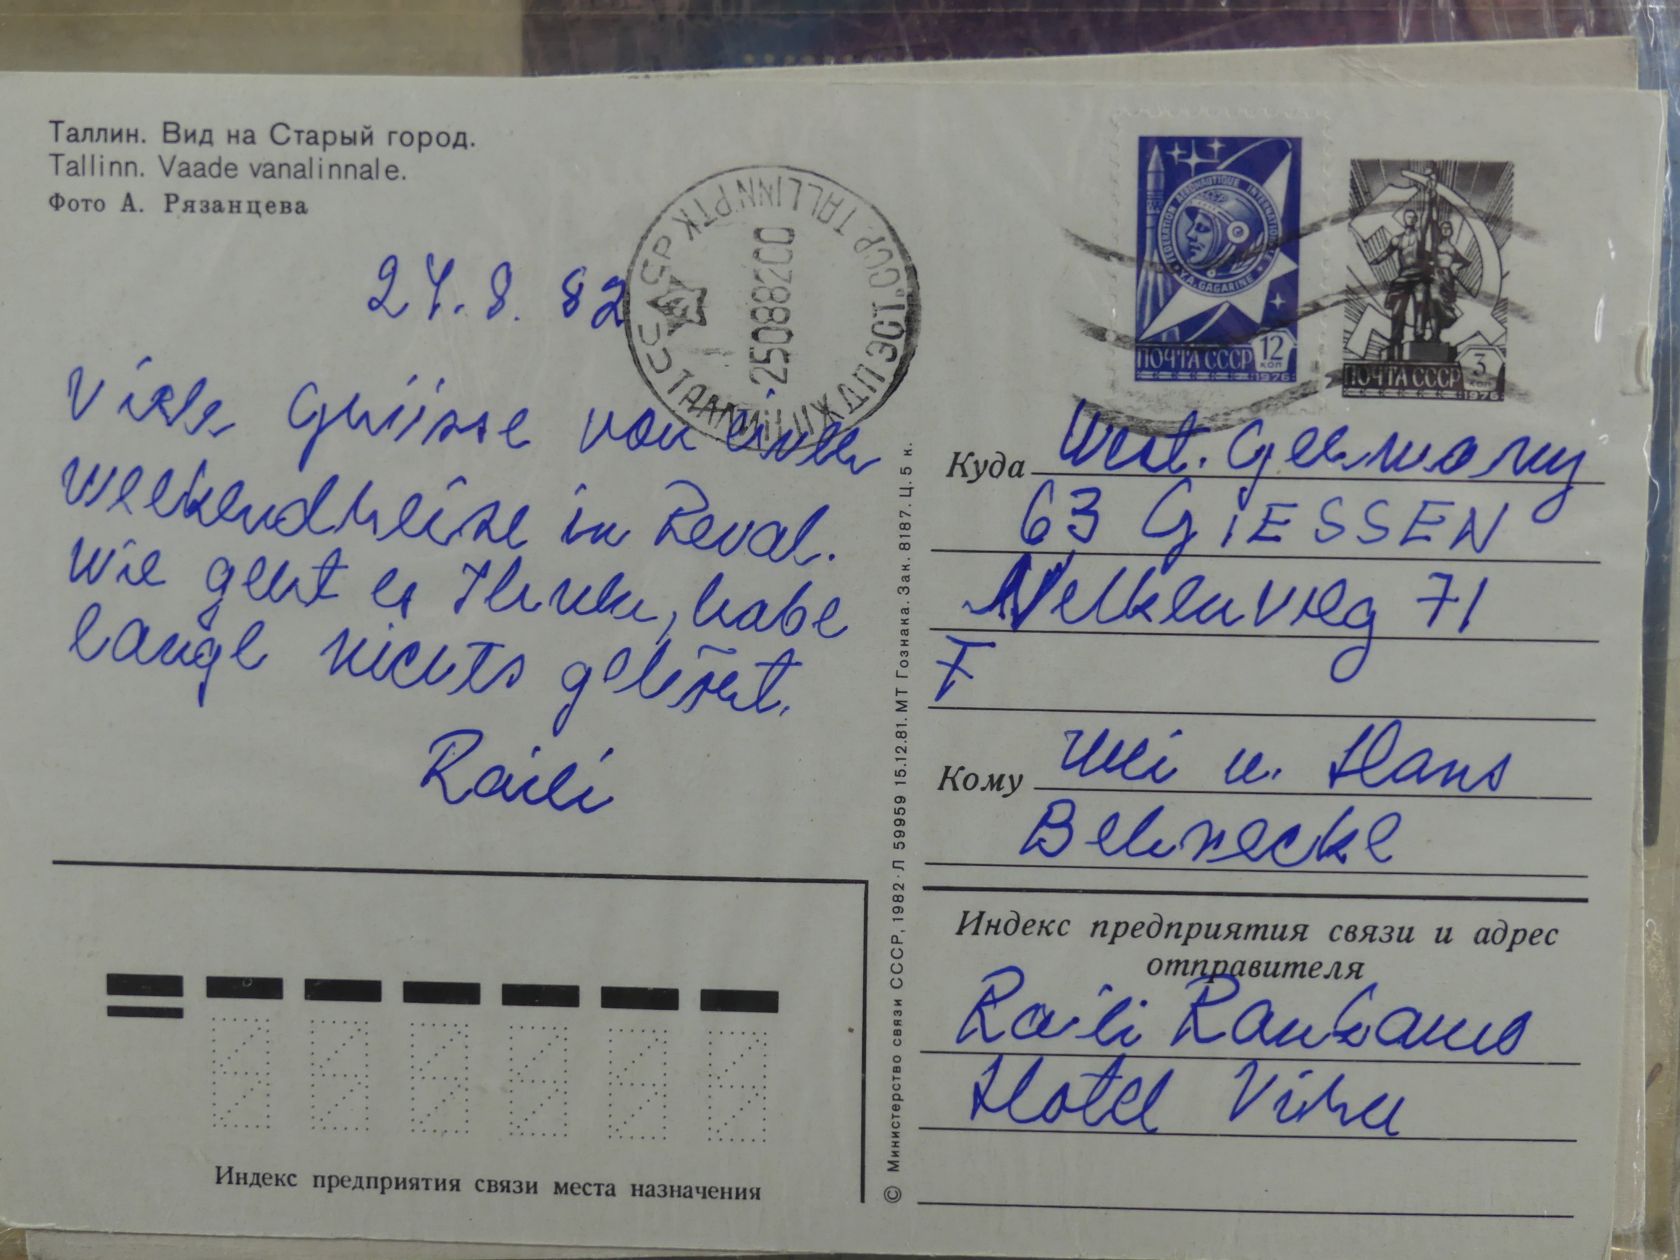 Таллин. Вид на Старый город.
Tallinn. Vaade vanalinnale.
Фото А. Рязанцева
24.8.82
Viele Grüsse von einer
Weekendreise in Reval.
Wie geht es Ihnen, habe
lange nichts gehört.
Raili
TALLINN PTK
ТАЛЛИН ПЖДП ЭСТ. ССР
25088200
FEDERATION AERONAUTIQUE INTERNATIONALE
СССР
Y.A. GAGARINE
ПОЧТА СССР 12 КОП
1976
ПОЧТА СССР 3 КОП
1976
Куда West. Germany
63 GIESSEN
Nelkenweg 71
F
Кому Uli u. Hans
Behnecke
Индекс предприятия связи и адрес
отправителя
Raili
Hotel Viru
© Министерство связи СССР, 1982. Л 59959 15.12.81. МТ Гознака. Зак. 8187. Ц. 5 к.
Индекс предприятия связи места назначения